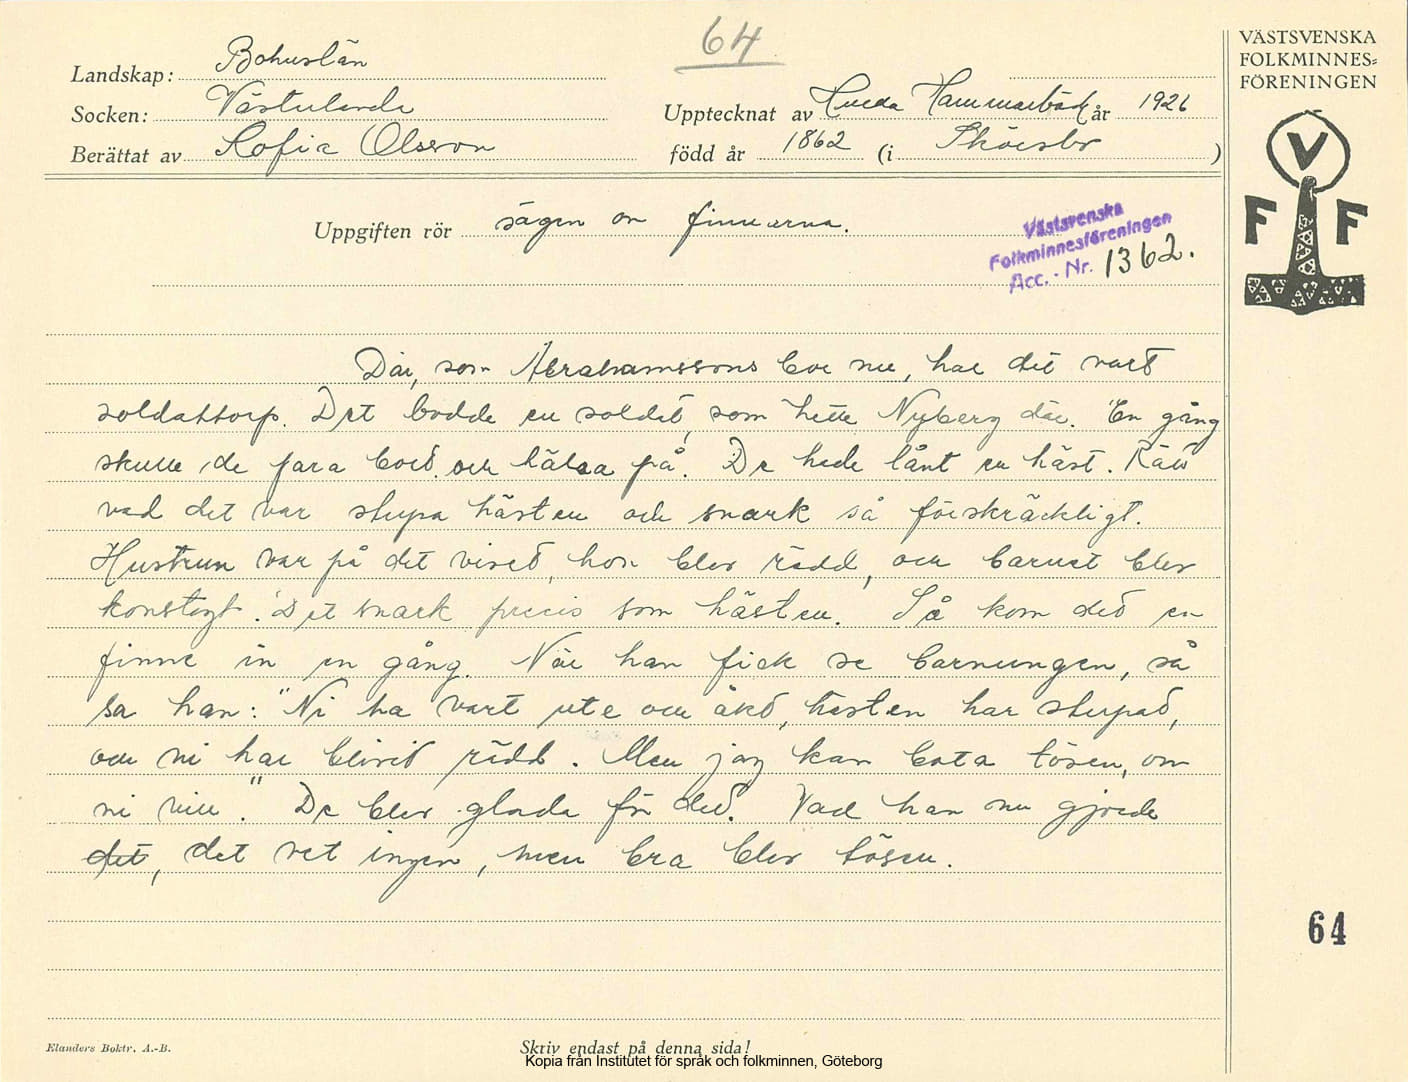 64
VÄSTSVENSKA
FOLKMINNES=
FÖRENINGEN
V
F F
Landskap: Bohuslän
Socken: Västerlanda
Upptecknat av Hulda Hammarbäck år 1926
Berättat av Sofia Olsson
född år 1862 (i Skörsbo)
Uppgiften rör sägen om finnarna.
Västsvenska
Folkminnesföreningen
Acc. - Nr. 1362.
Där, som Abrahamssons bor nu, har det vart
soldattorp. Det bodde en soldat, som hette Nyberg där. En gång
skulle de fara bort och hälsa på. De hade lånt en häst. Rätt
vad det var stupa hästen och snark så förskräckligt.
Hustrun var på det viset, hon blev rädd, och barnet blev
konstigt. Det snark precis som hästen. Så kom det en
finne in en gång. När han fick se barnungen, så
sa han: "Ni ha vart ute och åkt, hästen har stupat,
och ni har blivit rädd. Men jag kan bota tösen, om
ni vill." De blev glada för det. Vad han nu gjorde
det, det vet ingen, men bra blev tösen.
64
Elanders Boktr. A.-B.
Skriv endast på denna sida!
Kopia från Institutet för språk och folkminnen, Göteborg